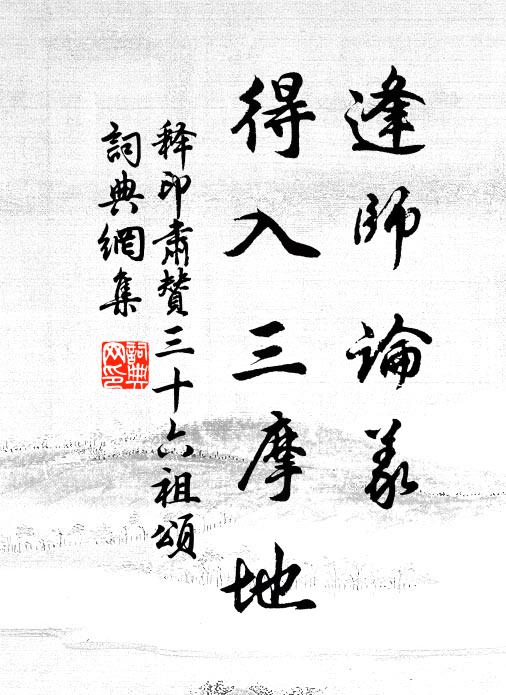 逢師論義
得入三摩地
释印肅贊三十六祖頌
詞典網集
詞典
网印